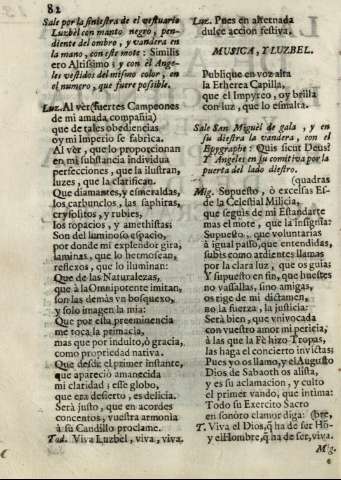 82
Sale por la siniestra de el vestuario
Luzbel con manto negro, pen-
diente del ombro, y vandera en
la mano, con este mote: Similis
ero Altissimo; y con èl Ange-
les vestidos del mismo color, en
el numero, que fuere possible.
Luz. Al vèr (fuertes Campeones
de mi amada compañia)
que de tales obediencias
oy mi Imperio se fabrica.
Al vèr, que lo proporcionan
en mi substancia individua
perfecciones, que la ilustran,
luzes, que la clarifican.
Que diamantes, y esmeraldas,
los carbunclos, las saphiras,
crysolitos, y rubies,
los topacios, y amethistas;
Son del luminoso espacio,
por donde mi explendor gira,
laminas, que lo hermosean,
reflexos, que lo iluminan:
Que de las Naturalezas,
que à la Omnipotente imitan,
son las demàs vn bosquexo,
y solo imagen la mia:
Que por esta preeminencia
me toca la primacia,
mas que por indulto, ò gracia,
como propriedad nativa.
Que desde el primer instante,
que apareciò amanecida
mi claridad; esse globo,
que era desierto, es delicia.
Serà justo, que en acordes
concentos, vuestra armonia
à su Candillo proclame.
Tod. Viva Luzbel, viva, viva.
Luz. Pues en alternada
dulce accion festiva.
MUSICA, Y LUZBEL.
Publique en voz alta
la Etherea Capilla,
que el Impyreo, oy brilla
con luz, que lo esmalta.
Sale San Miguel de gala, y en
su diestra la vandera, con el
Epygraphe: Quis sicut Deus?
Y Angeles en su comitiva por la
puerta del lado diestro.
(quadras
Mig. Supuesto, ò excelsas Es-
de la Celestial Milicia,
que seguis de mi Estandarte
mas el mote, que la insignia:
Supuesto, que voluntarias
à igual passo, que entendidas,
subis como ardientes llamas
por la clara luz, que os guia:
Y supuesto en fin, que huestes
no vassallas, sino amigas,
os rige de mi dictamen,
no la fuerza, la justicia:
Serà bien, que vnivocada
con vuestro amor mi pericia,
à las que la Fè hizo Tropas,
las haga el concierto invictas;
Pues yo os llamo, y el Augusto
Dios de Sabaoth os alista,
y es su aclamacion, y culto
el primer vando, que intima:
Todo su Exercito Sacro
en sonoro clamor diga: (bre,
T. Viva el Dios, q̃ ha de ser Hõ-
y el Hombre, q̃ ha de ser, viva.
Mig.